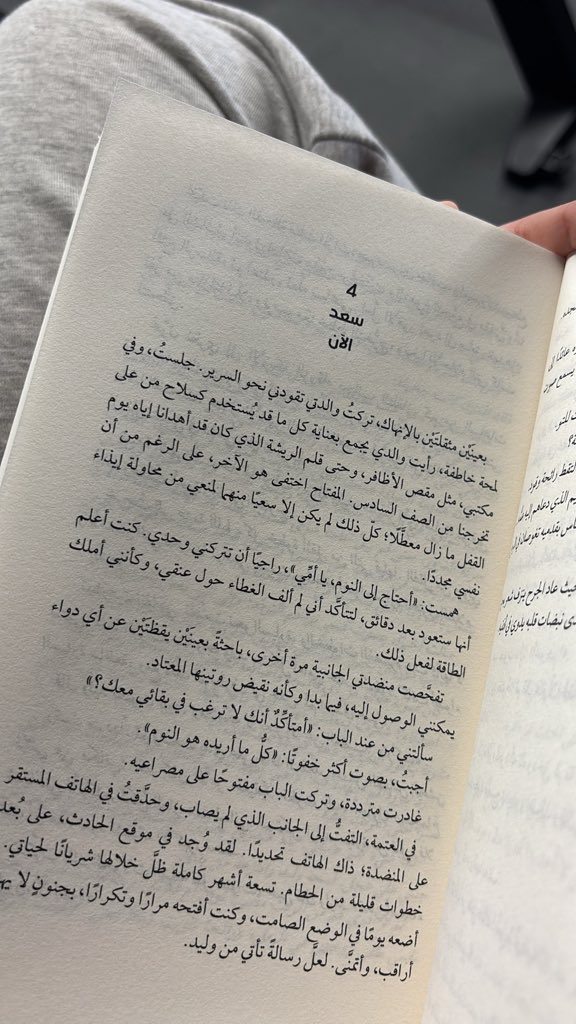 4
سعد
الآن
بعينَيْن مثقلتَيْن بالإنهاك، تركتُ والدتي تقودني نحو السرير. جلستُ، وفي
لمحة خاطفة، رأيت والدي يجمع بعناية كل ما قد يُستخدم كسلاح من على
مكتبي، مثل مقص الأظافر، وحتى قلم الريشة الذي كان قد أهدانا إياه يوم
تخرجنا من الصف السادس. المفتاح اختفى هو الآخر، على الرغم من أن
القفل ما زال معطَّلًا؛ كلّ ذلك لم يكن إلا سعيًا منهما لمنعي من محاولة إيذاء
نفسي مجددًا.
همست: «أحتاج إلى النوم، يا أمّي»، راجيًا أن تتركني وحدي. كنت أعلم
أنها ستعود بعد دقائق، لتتأكّد أني لم ألف الغطاء حول عنقي، وكأنني أملك
الطاقة لفعل ذلك.
تفحَّصت منضدتي الجانبية مرة أخرى، باحثةً بعينَيْن يقظتَيْن عن أي دواء
يمكنني الوصول إليه، فيما بدا وكأنه نقيض روتينها المعتاد.
سألتني من عند الباب: «أمتأكِّدٌ أنك لا ترغب في بقائي معك؟»
أجبتُ، بصوت أكثر خفوتًا: «كلُّ ما أريده هو النوم».
غادرت مترددة، وتركت الباب مفتوحًا على مصراعيه.
في العتمة، التفتُّ إلى الجانب الذي لم يصاب، وحدَّقتُ في الهاتف المستقر
على المنضدة؛ ذاك الهاتف تحديدًا. لقد وُجد في موقع الحادث، على بُعد
خطوات قليلة من الحطام. تسعة أشهر كاملة ظلَّ خلالها شريانًا لحياتي.
أضعه يومًا في الوضع الصامت، وكنت أفتحه مرارًا وتكرارًا، بجنونٍ لا
أراقب، وأتمنَّى. لعلَّ رسالةً تأتي من وليد.